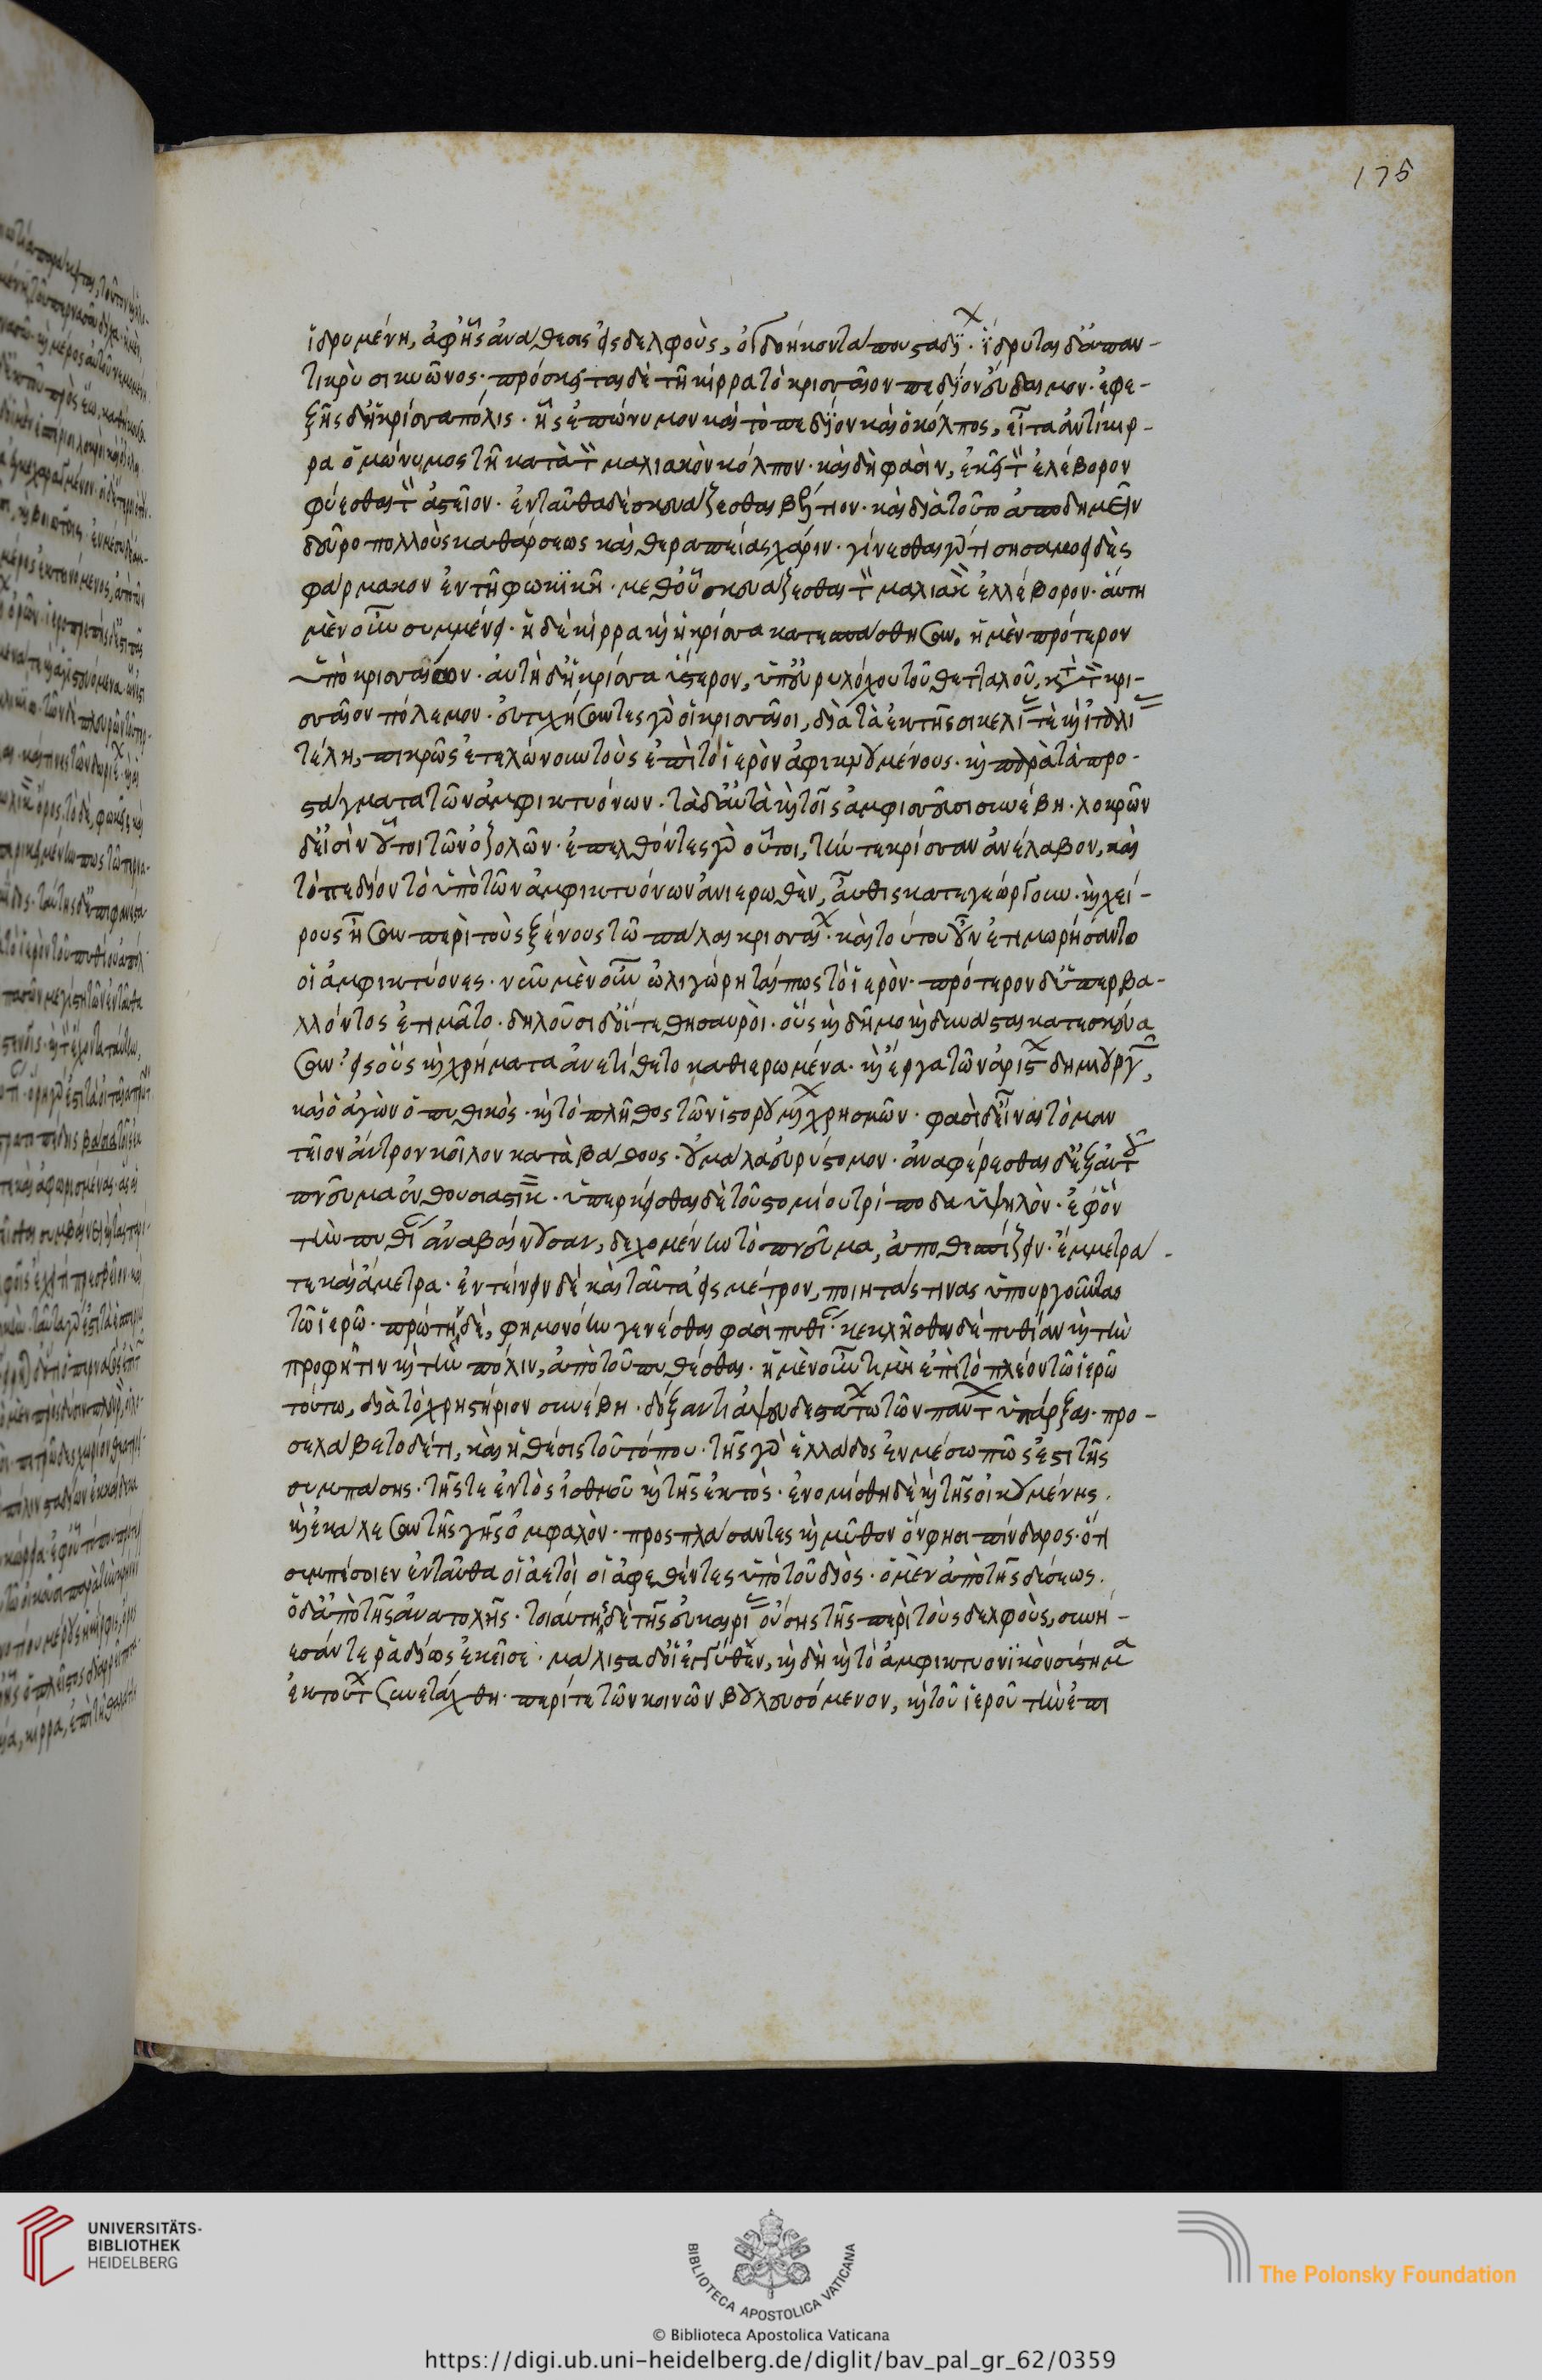 175
ἱδρυμένη, ἀφ᾽ ἧς ἀνάβασις εἰς δελφοὺς, ὀγδοήκοντά που σταδίων. ἵδρυται δ᾽ ἀπαν-
τικρὺ σικυῶνος. πρόσκειται δὲ τῆ κίρρα τὸ κρισαῖον πεδίον εὔδαιμον. ἐφε-
ξῆς δ᾽ ἡ κρίσα πόλις. ἧς ἐπώνυμον καὶ τὸ πεδίον καὶ ὁ κόλπος, εἶτα ἀντίκιρ-
ρα ὁμώνυμος τῆ κατὰ τὸν μαλιακὸν κόλπον. καὶ δὴ φασὶν, ἐκεῖ τὸν ἐλέβορον
φύεσθαι τὸν ἀστεῖον. ἐνταῦθα δὲ σκευάζεσθαι βέλτιον. καὶ διὰ τοῦτο ἀποδημεῖν
δεῦρο πολλοὺς καθάρσεως καὶ θεραπείας χάριν. γίνεσθαι γάρ τι σησαμοειδὲς
φάρμακον ἐν τῆ φωκϊκῆ. μεθ᾽ οὗ σκευάζεσθαι τὸν μαλιακὸν ἐλλέβορον. αὕτη
μὲν οὖν συμμένει. ἡ δὲ κίρρα καὶ ἡ κρίσα κατεσπάσθησαν. ἡ μὲν πρότερον
ὑπὸ κρισαίων. αὐτὴ δ᾽ ἡ κρίσα ὕστερον, ὑπ᾽ εὐρυλόχου τοῦ θετταλοῦ, κατὰ τὸν κρι-
σαῖον πόλεμον. εὐτυχήσαντες γὰρ οἱ κρισαῖοι, διὰ τὰ ἐκ τῆς σικελίας τὲ καὶ ἰταλίας
τέλη, πικρῶς ἐτελώνουν τοὺς ἐπὶ τὸ ἱερὸν ἀφικνουμένους. καὶ παρὰ τὰ προ-
στάγματα τῶν ἀμφικτυόνων. τὰ δ᾽ αὐτὰ καὶ τοῖς ἀμφισσεῦσι συνέβη. λοκρῶν
δ᾽ εἰσὶν οὗτοι τῶν ὀζολῶν. ἐπελθόντες γὰρ οὗτοι, τήν τε κρίσαν ἀνέλαβον, καὶ
τὸ πεδίον τὸ ὑπὸ τῶν ἀμφικτυόνων ἀνιερωθὲν, αὖθις κατεγεώργουν. καὶ χεί-
ρους ἦσαν περὶ τοὺς ξένους τῶν πάλαι κρισαίων. καὶ τούτους οὖν ἐτιμωρήσαντο
οἱ ἀμφικτύονες. νῦν μὲν οὖν ὠλιγώρηταί πως τὸ ἱερὸν. πρότερον δ᾽ ὑπερβα-
λλόντος ἐτιμᾶτο. δηλοῦσι δ᾽ οἵ τε θησαυροὶ. οὓς καὶ δῆμοι καὶ δυνάσται κατεσκεύα
σαν. εἰς οὓς καὶ χρήματα ἀνετίθετο καθιερωμένα. καὶ ἔργα τῶν ἀρίστων δημιουργῶν,
καὶ ὁ ἀγὼν ὁ πυθικὸς. καὶ τὸ πλῆθος τῶν ἱστορουμένων χρησμῶν. φασὶ δ᾽ εἶναι τὸ μαν
τεῖον ἄντρον κοῖλον κατὰ βάθους. οὐ μάλα εὐρύστομον. ἀναφέρεσθαι δ᾽ ἐξ αὐτοῦ
πνεῦμα ἐνθουσιαστικὸν. ὑπερκεῖσθαι δὲ τοῦ στομίου τρίποδα ὑψηλὸν. ἐφ᾽ ὃν
τὴν πυθίαν ἀναβαίνουσαν, δεχομένην τὸ πνεῦμα, ἀποθεσπίζειν. ἔμμετρά
τε καὶ ἄμετρα. ἐντείνειν δὲ καὶ ταῦτα εἰς μέτρον, ποιητάς τινας ὑπουργοῦντας
τῶ ἱερῶ. πρώτην δὲ, φημονόην γενέσθαι φασὶ πυθίαν. κεκλῆσθαι δὲ πυθίαν καὶ τὴν
προφῆτιν καὶ τὴν πόλιν, ἀπὸ τοῦ πυθέσθαι. ἡ μὲν οὖν τιμὴ ἐπὶ τὸ πλέον τῶ ἱερῶ
τούτω, διὰ τὸ χρηστήριον συνέβη. δόξαντι ἀψευδεστάτω τῶν πάντων ὑπάρξαι. προ-
σελάβετο δέ τι, καὶ ἡ θέσις τοῦ τόπου. τῆς γὰρ ἑλλάδος ἐν μέσω πώς ἐστι τῆς
συμπάσης. τῆς τε ἐντὸς ἰσθμοῦ καὶ τῆς ἐκτὸς. ἐνομίσθη δὲ καὶ τῆς οἰκουμένης.
καὶ ἐκάλεσαν τῆς γῆς ὀμφαλὸν. προσπλάσαντες καὶ μῦθον ὅν φησι πίνδαρος. ὅτι
συμπέσοιεν ἐνταῦθα οἱ ἀετοὶ οἱ ἀφεθέντες ὑπὸ τοῦ διὸς. ὁ μὲν ἀπὸ τῆς δύσεως.
ὁ δ᾽ ἀπὸ τῆς ἀνατολῆς. τοιαύτης δὲ τῆς εὐκαιρίας οὔσης τῆς περὶ τοὺς δελφοὺς, συνῄ-
εσάν τε ῥαδίως ἐκεῖσε. μάλιστα δ᾽ οἱ ἐγγύθεν, καὶ δὴ καὶ τὸ ἀμφικτυονϊκὸν σύστημα
ἐκ τούτων συνετάχθη. περί τε τῶν κοινῶν βουλευσόμενον, καὶ τοῦ ἱεροῦ τὴν ἐπι
UNIVERSITÄTS-
BIBLIOTHEK
HEIDELBERG
BIBLIOTECA APOSTOLICA VATICANA
The Polonsky Foundation
© Biblioteca Apostolica Vaticana
https://digi.ub.uni-heidelberg.de/diglit/bav_pal_gr_62/0359